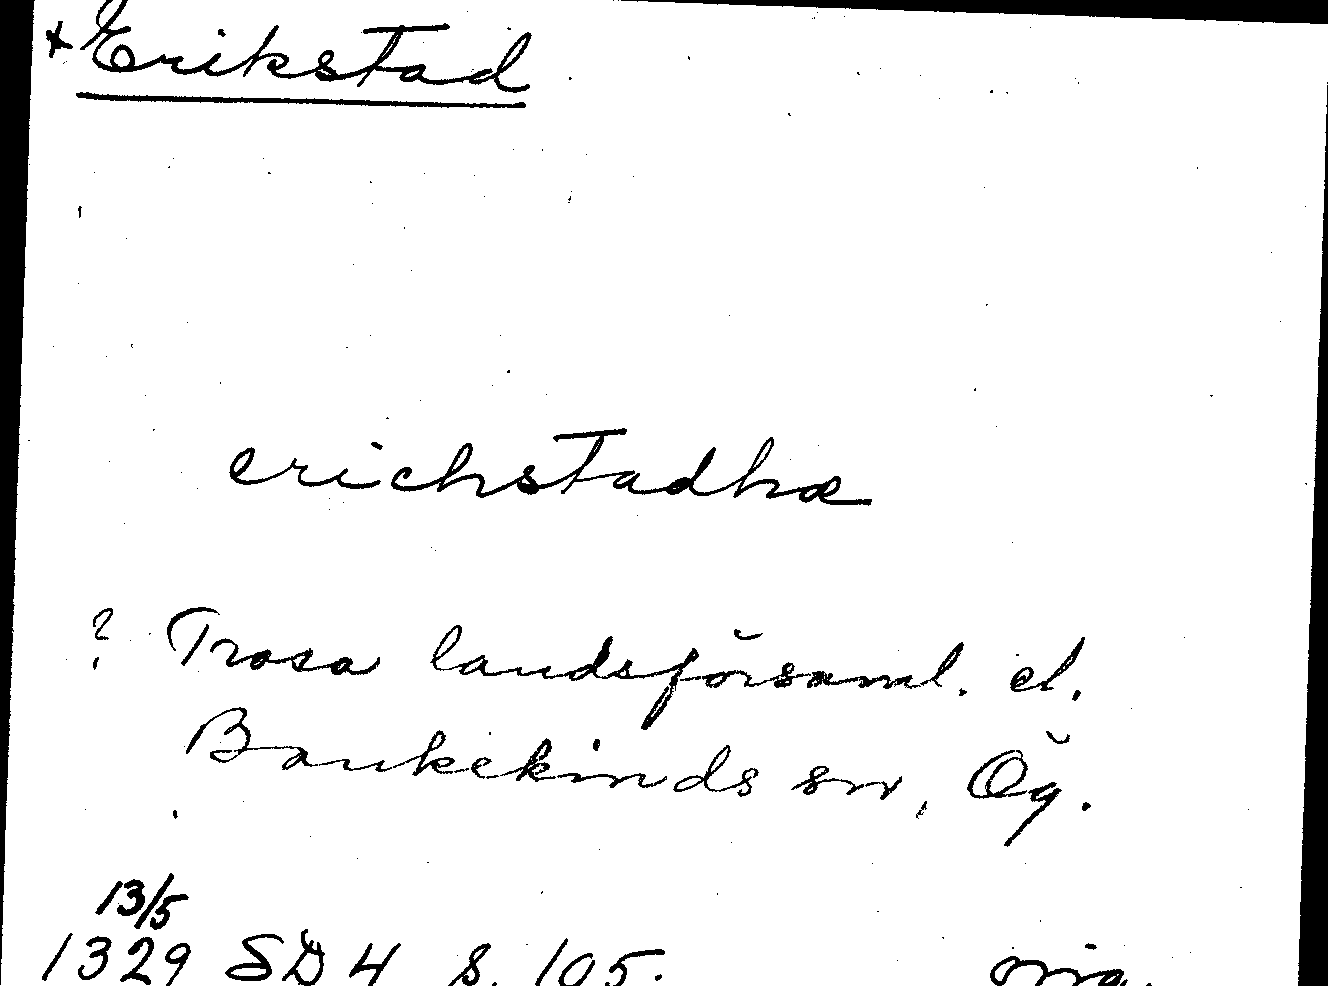 *Erikstad
erichstadhæ
? Trosa landsförsaml. el.
Bankekinds sn, Ög.
13/5
1329 SD 4 s. 105. orig.